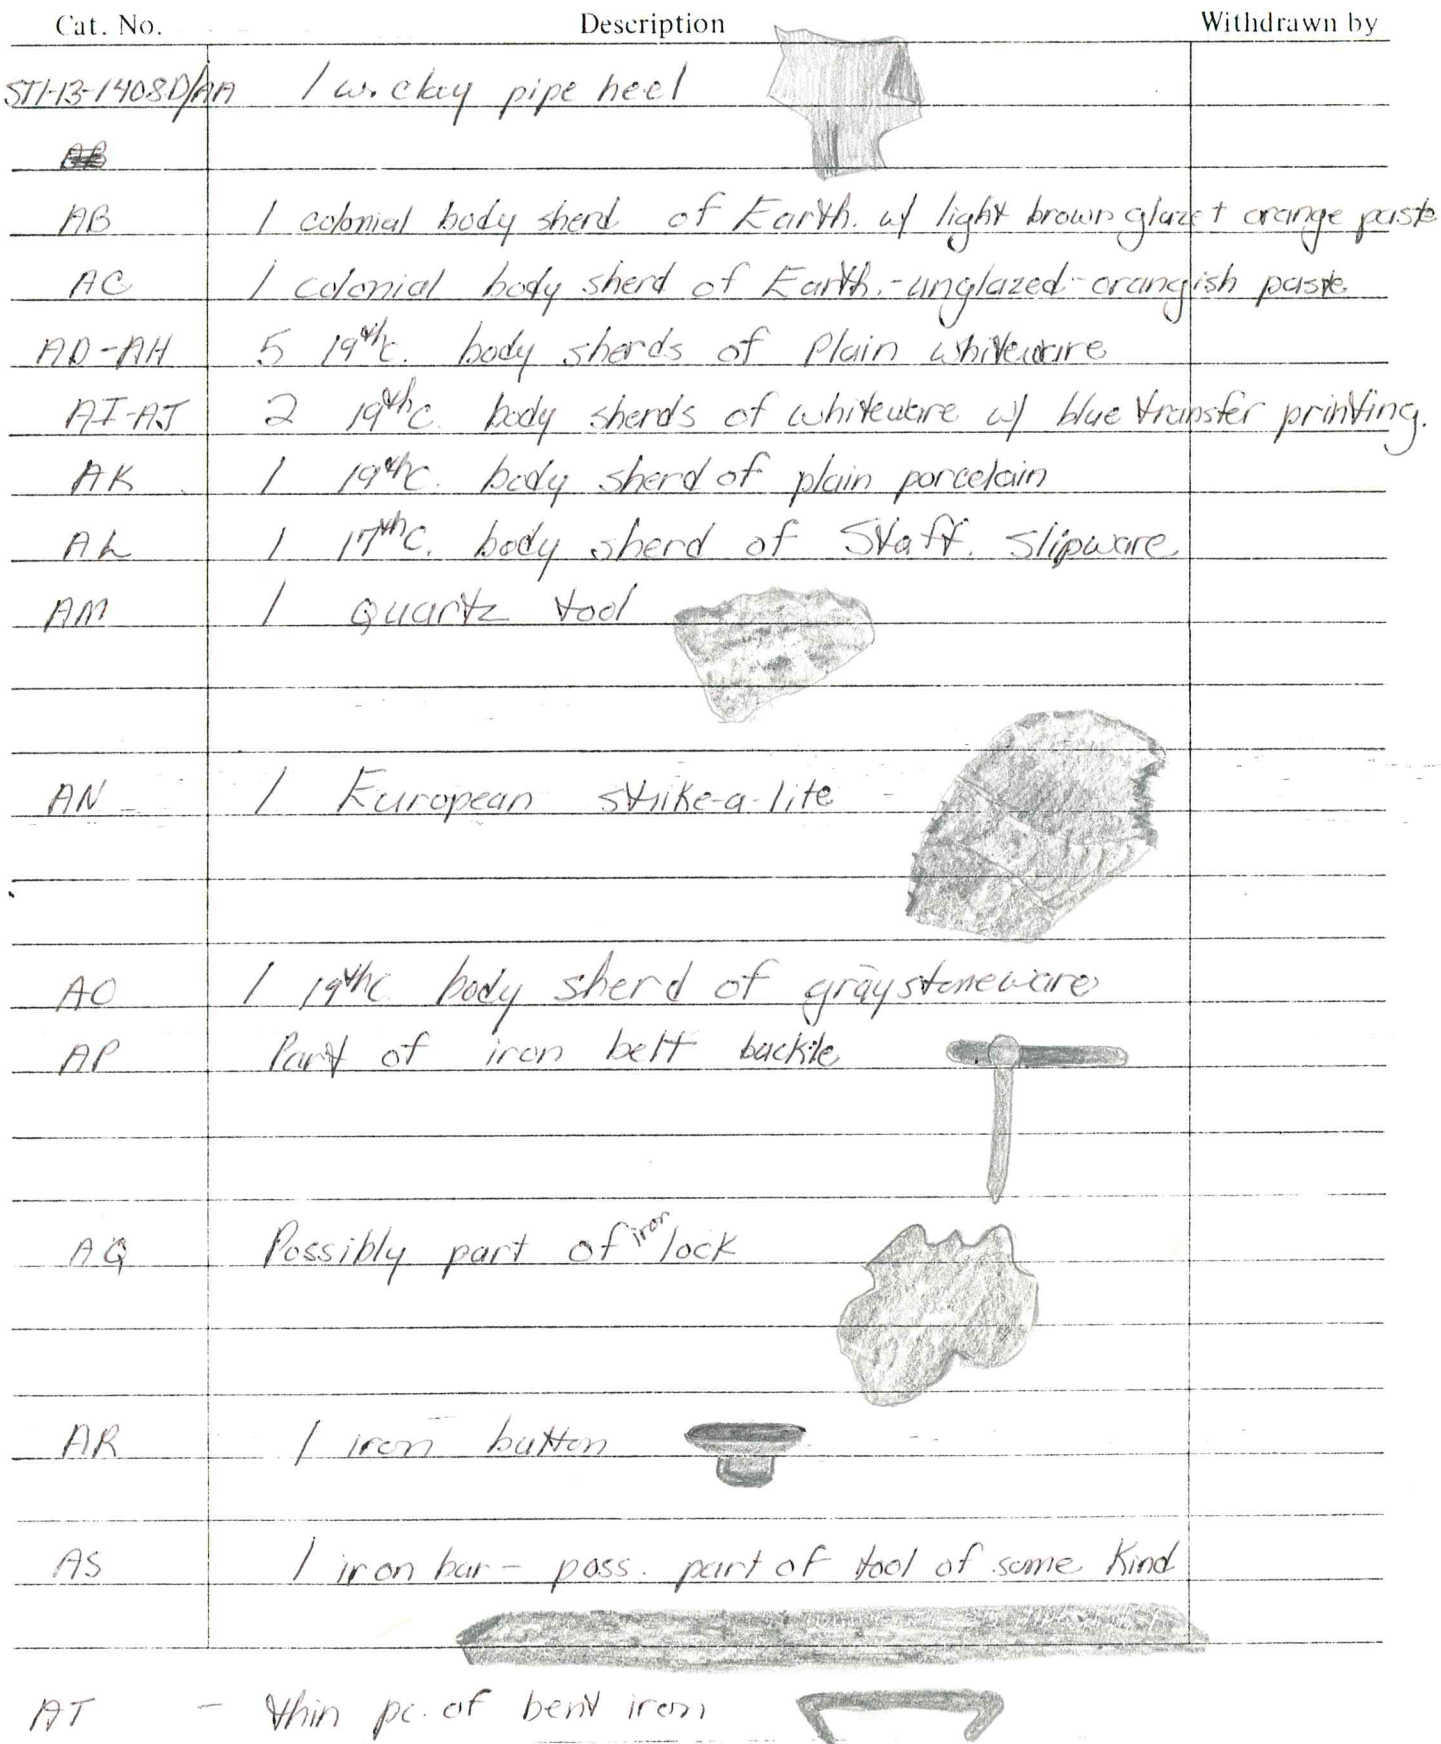 Cat. No. Description Withdrawn by
ST1-13-1408D/AA 1 w. clay pipe heel
AB 1 colonial body sherd of Earth. w/ light brown glaze + orange paste
AC 1 colonial body sherd of Earth.-unglazed-orangish paste
AD-AH 5 19thc. body sherds of Plain whiteware
AI-AJ 2 19thc. body sherds of whiteware w/ blue transfer printing.
AK 1 19thc. body sherd of plain porcelain
AL 1 17thc. body sherd of Staff. Slipware
AM 1 Quartz tool
AN 1 European strike-a-lite
AO 1 19thc body sherd of gray stoneware
AP Part of iron belt buckle
AQ Possibly part of iron lock
AR 1 iron button
AS 1 iron bar - poss. part of tool of some Kind
AT - thin pc. of bent iron